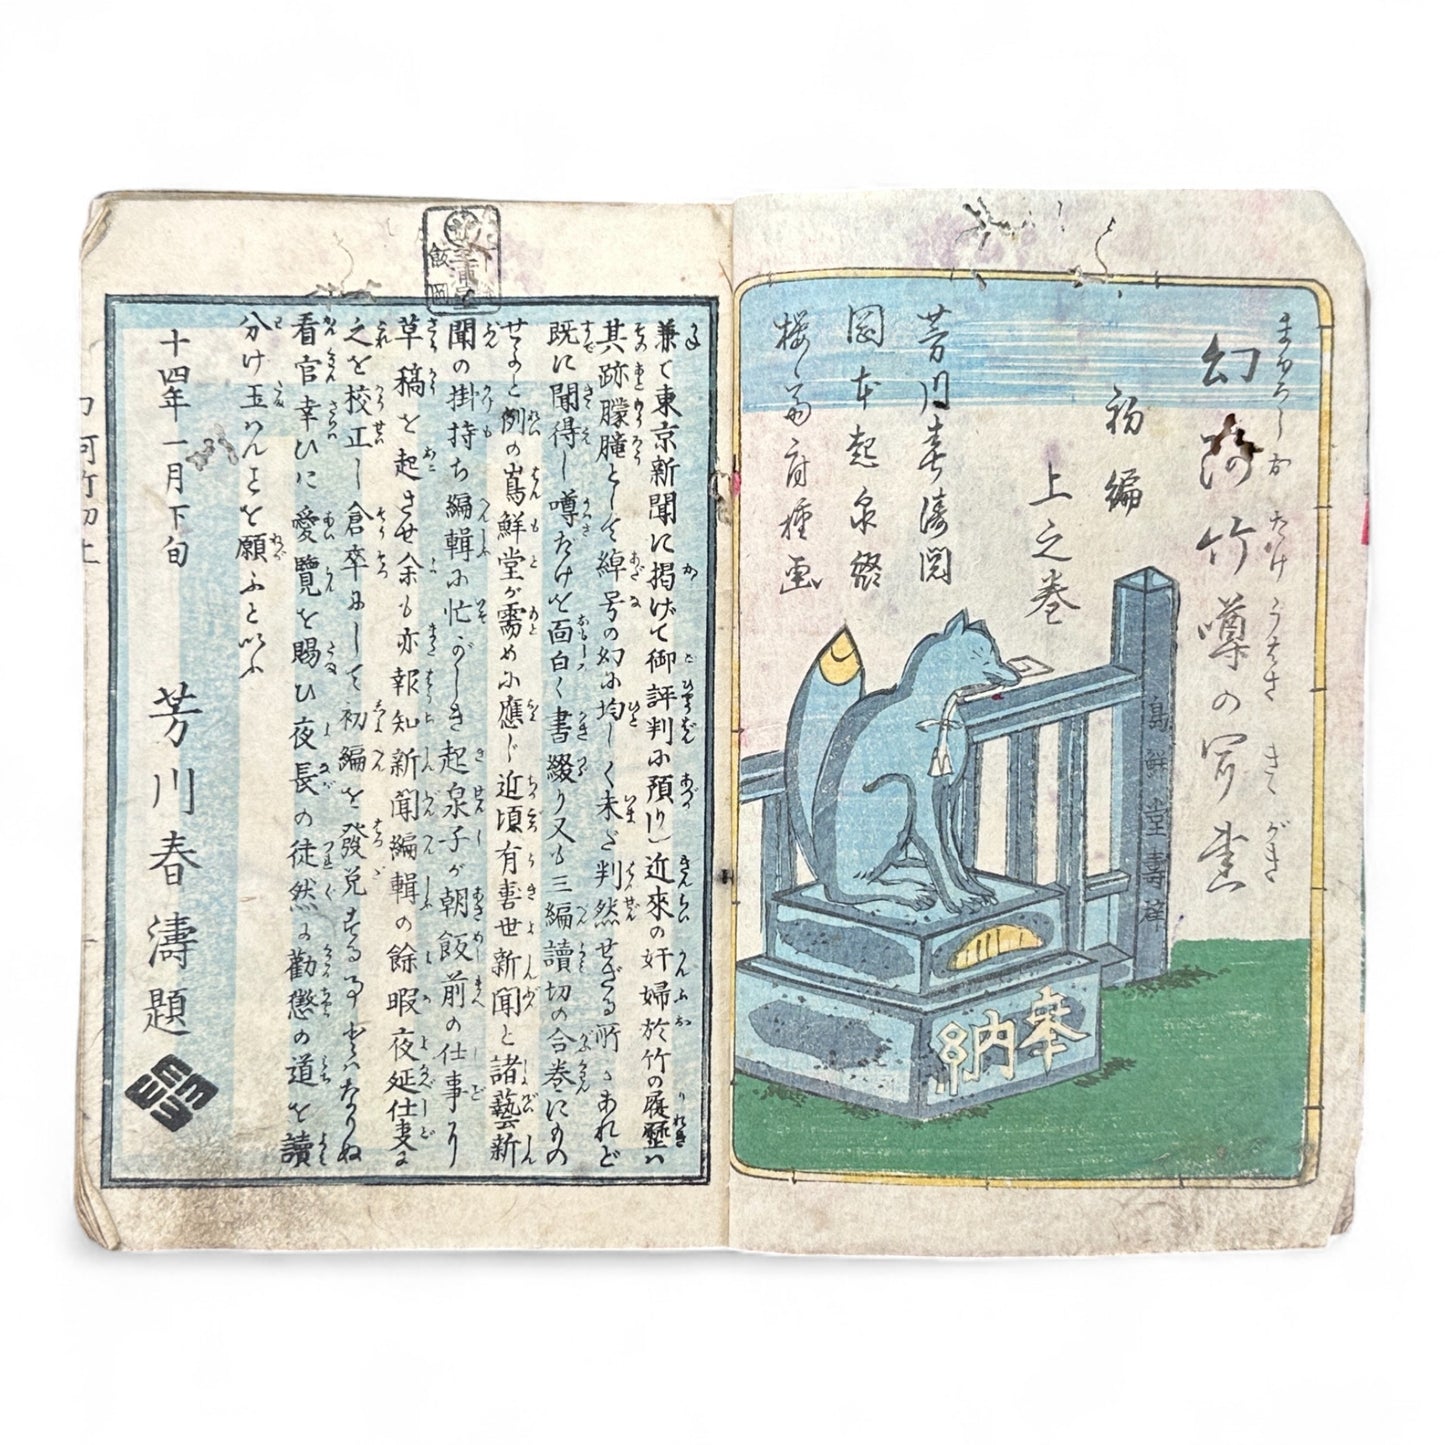 幻阿竹噂の写書
まぼろしおたけうはさきゝがき
初編
上之巻
芳川春濤閲
岡本起泉綴
桜斎房種画
島鮮堂壽梓
奉納
兼て東京新聞に掲げて御評判に預りし近來の奸婦於竹の履歴は
其跡朦朧として綽号の幻に均しく未だ判然せざる所もあれど
既に聞得し噂だけを面白く書綴り又も三編讀切の合巻にもの
せよと例の嶌鮮堂が需めに應じ近頃有喜世新聞と諸藝新
聞の掛持ち編輯に忙がしき起泉子が朝飯前の仕事より
草稿を起させ余も亦報知新聞編輯の餘暇夜延仕事に
之を校正し倉卒にして初編を發兌する事とはなりぬ
看官幸ひに愛覽を賜ひ夜長の徒然に勸懲の道を讀
分け玉はんことを願ふと以ふ
十四年一月下旬
芳川春濤題